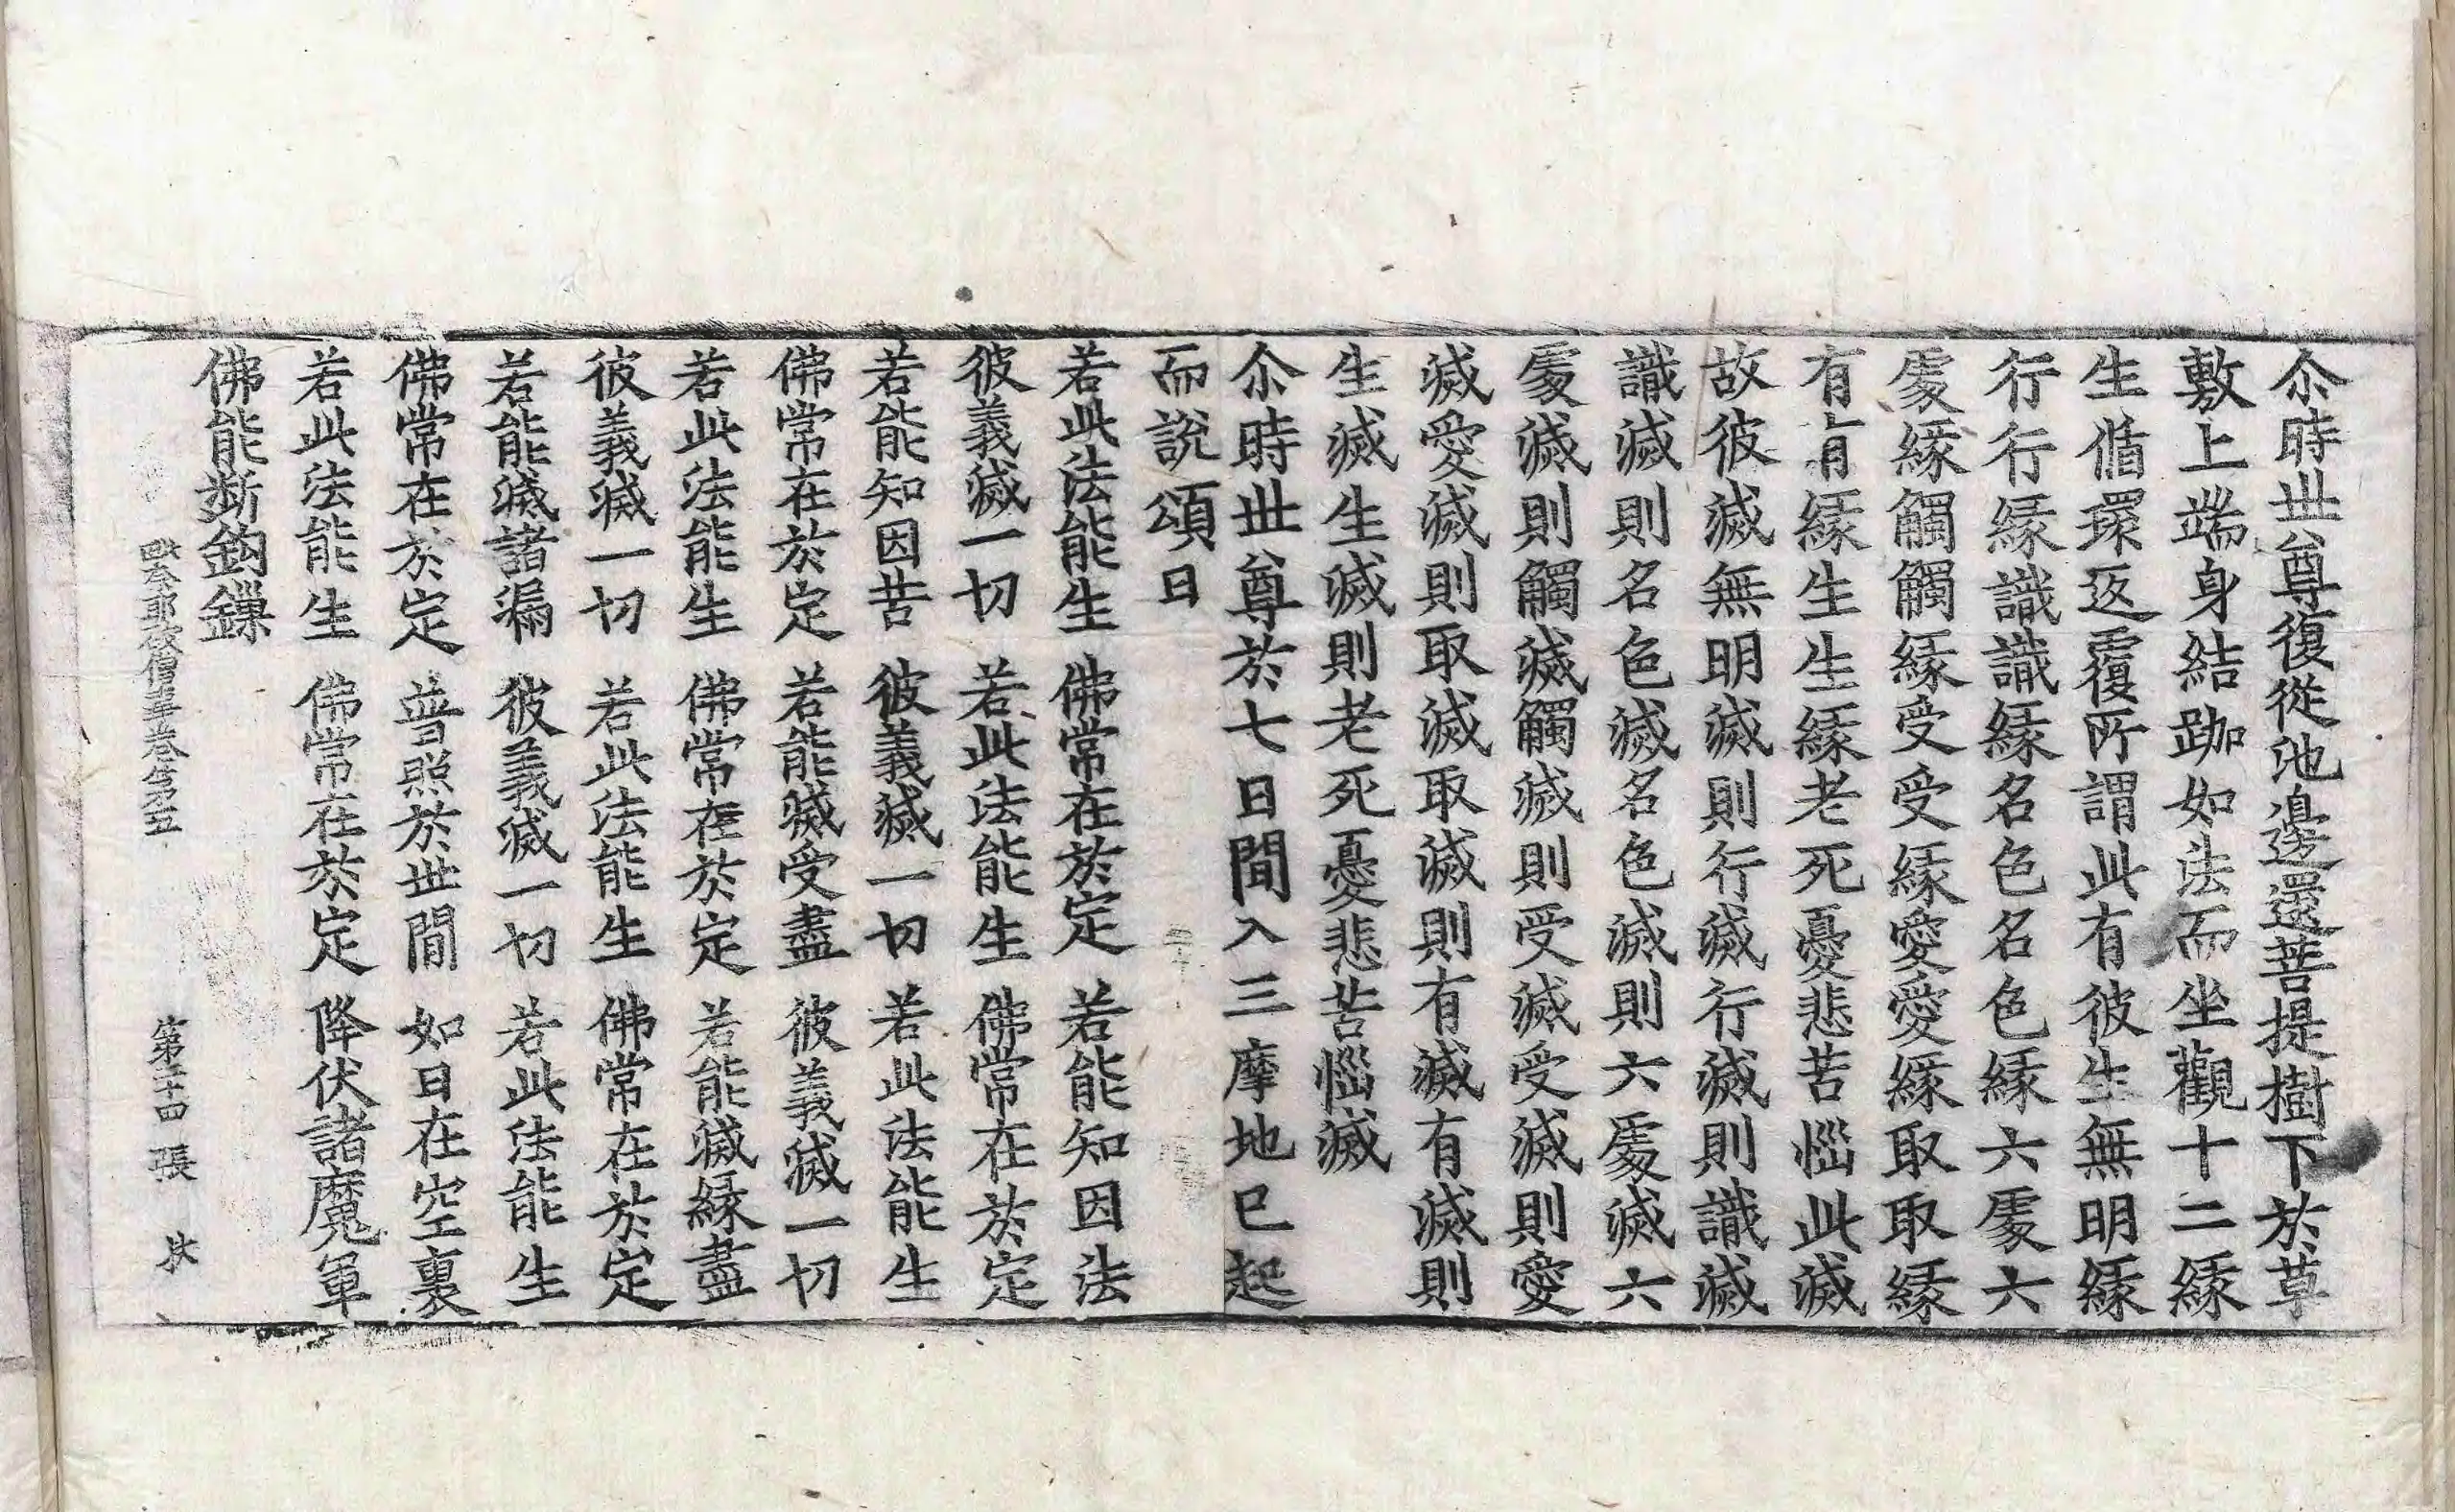 尒時世尊復從池邊還菩提樹下於草
敷上端身結跏如法而坐觀十二緣
生循環返覆所謂此有彼生無明緣
行行緣識識緣名色名色緣六處六
處緣觸觸緣受受緣愛愛緣取取緣
有有緣生生緣老死憂悲苦惱此滅
故彼滅無明滅則行滅行滅則識滅
識滅則名色滅名色滅則六處滅六
處滅則觸滅觸滅則受滅受滅則愛
滅愛滅則取滅取滅則有滅有滅則
生滅生滅則老死憂悲苦惱滅
尒時世尊於七日間入三摩地已起
而說頌曰
若此法能生 佛常在於定 若能知因法
彼義滅一切 若此法能生 佛常在於定
若能知因苦 彼義滅一切 若此法能生
佛常在於定 若能滅受盡 彼義滅一切
若此法能生 佛常在於定 若能滅緣盡
彼義滅一切 若此法能生 佛常在於定
若能滅諸漏 彼義滅一切 若此法能生
佛常在於定 普照於世間 如日在空裏
若此法能生 佛常在於定 降伏諸魔軍
佛能斷鈎鏁
奈耶破僧事卷第五 第二十四張